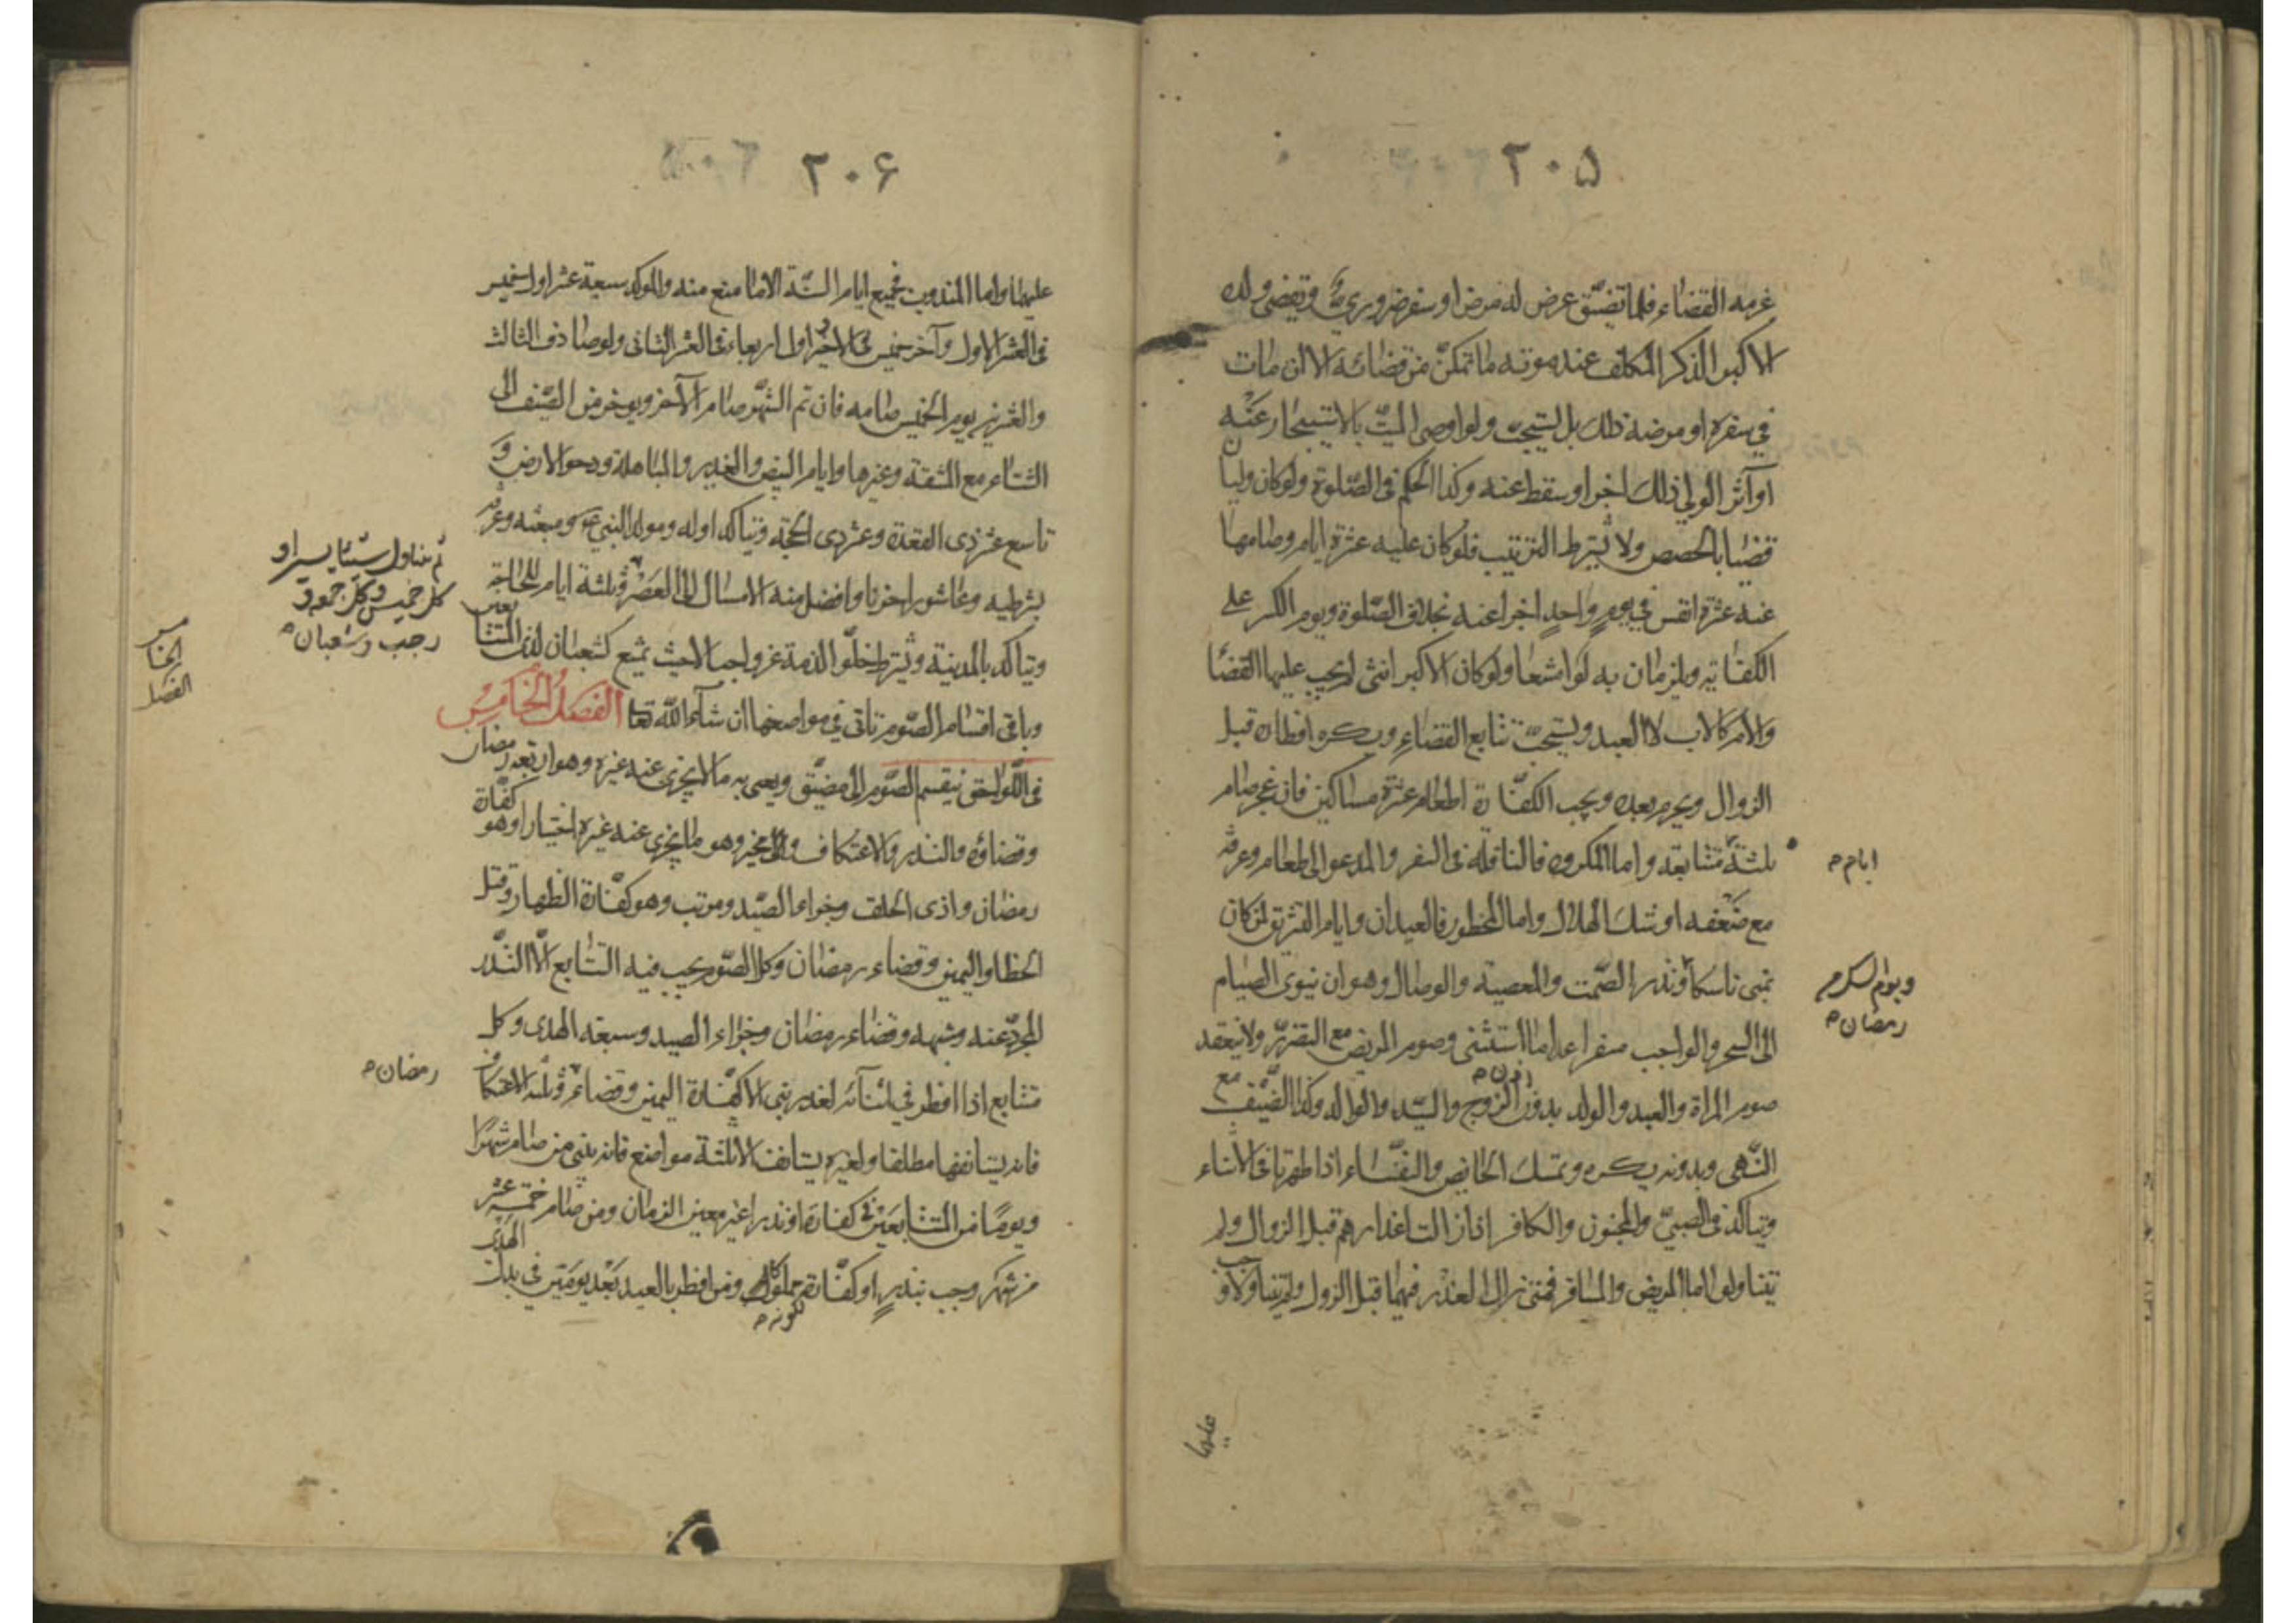 ۲۰۵
عزمه القضاء فلما تضيق عرض له مرض او سفر ضروري ويقضى ولده
الاكبر الذكر المكلف عند موته ما تمكن من قضائه الا ان مات
في سفره او مرضه ذلك بل يستحب ولو اوصى الميت بالاستيجار عنه
او آثر الولي ذلك اجزا وسقط عنه وكذا الحكم فى الصلوة ولو كان وليان
قضيا بالحصص ولا يشترط الترتيب فلو كان عليه عشرة ايام وصامها
عنه عشرة انفس في يوم واحد اجزا عنه بخلاف الصلوة ويوم الكسر على
الكفاية ويلزمان به لو امتنعا ولو كان الاكبر انثى لم يجب عليها القضا
والام كالاب لا العبد ويستحب تتابع القضاء ويكره افطاره قبل
الزوال ويحرم بعده ويجب الكفارة اطعام عشرة مساكين فان عجز صام
ثلثة متتابعة واما المكروه فالنافلة فى السفر والمدعو الى طعام وعرفة
ايام
مع ضعفه او شك الهلال واما المحظور فالعيدان وايام التشريق لمن كان
بمنى ناسكا ونذر الصمت والمعصية والوصال وهو ان ينوى الصيام
ويوم الشك من
رمضان
الى السحر والواجب سفرا عدا ما استثنى وصوم المريض مع التضرر ولا ينعقد
صوم المراة والعبد والولد بدون اذن الزوج والسيد والوالد وكذا الضيف مع
النهى وبدونه يكره وتمسك الحائض والنفساء اذا طهرتا فى الاثناء
ويتاكد فى الصبي والمجنون والكافر اذا زالت اعذارهم قبل الزوال ولم
يتناولوا اما المريض والمسافر فمتى زال العذر فيهما قبل الزوال ولم يتناولا وجب
عليهما
۲۰۶
عليهما واما المندوب فجميع ايام السنة الا ما منع منه والموكد سبعة عشر اول خميس
فى العشر الاول وآخر خميس فى الاخير واول اربعاء فى العشر الثانى ولو صادف الثالث
والعشرين يوم الخميس صامه فان تم الشهر صام الآخر ويوخر من الصيف الى
الشتاء مع المشقة وغيرها وايام البيض والغدير والمباهلة ودحو الارض و
تاسع عشر ذى القعدة وعشر ذى الحجة ويتاكد اوله ومولد النبي ومبعثه وعرفة
بشرطيه وعاشورا حزنا وافضل منه الامساك الى العصر وثلثة ايام للحاجة
ثم يتناول شيئا يسيرا و
كل خميس وكل جمعة و
رجب وشعبان
ويتاكد بالمدينة ويشترط خلو الذمة عن واجب الا حيث يمتنع كشعبان لذى المتتابعين
وباقى اقسام الصوم تاتى في مواضعها ان شآء الله تعا الفصل الخامس
الخامس
الفصل
فى اللواحق ينقسم الصوم الى مضيق ويعنى به ما لا يجزى عنه غيره وهو اربعة رمضان
وقضاؤه والنذر والاعتكاف والى مخير وهو ما يجزى عنه غيره اختيارا وهو كفارة
رمضان واذى الحلق وجزاء الصيد ومرتب وهو كفارة الظهار وقتل
الخطا واليمين وقضاء رمضان وكل الصوم يجب فيه التتابع الا النذر
المجرد عنه وشبهه وقضاء رمضان وجزاء الصيد وسبعة الهدى وكل
متتابع اذا افطر في اثنائه لعذر بنى الا كفارة اليمين وقضاء وثلثة الاعتكاف
رمضان
فانه يستانفها مطلقا ولغيره يستانف الا ثلثة مواضع فانه يبنى من صام شهرا
ويوما من المتتابعين في كفارة او نذر غير معين الزمان ومن صام خمسة عشر
من شهر وجب بنذر او كفارة لكونه مملوكا ومن افطر بالعيد بعد يومين في بدل الهدى